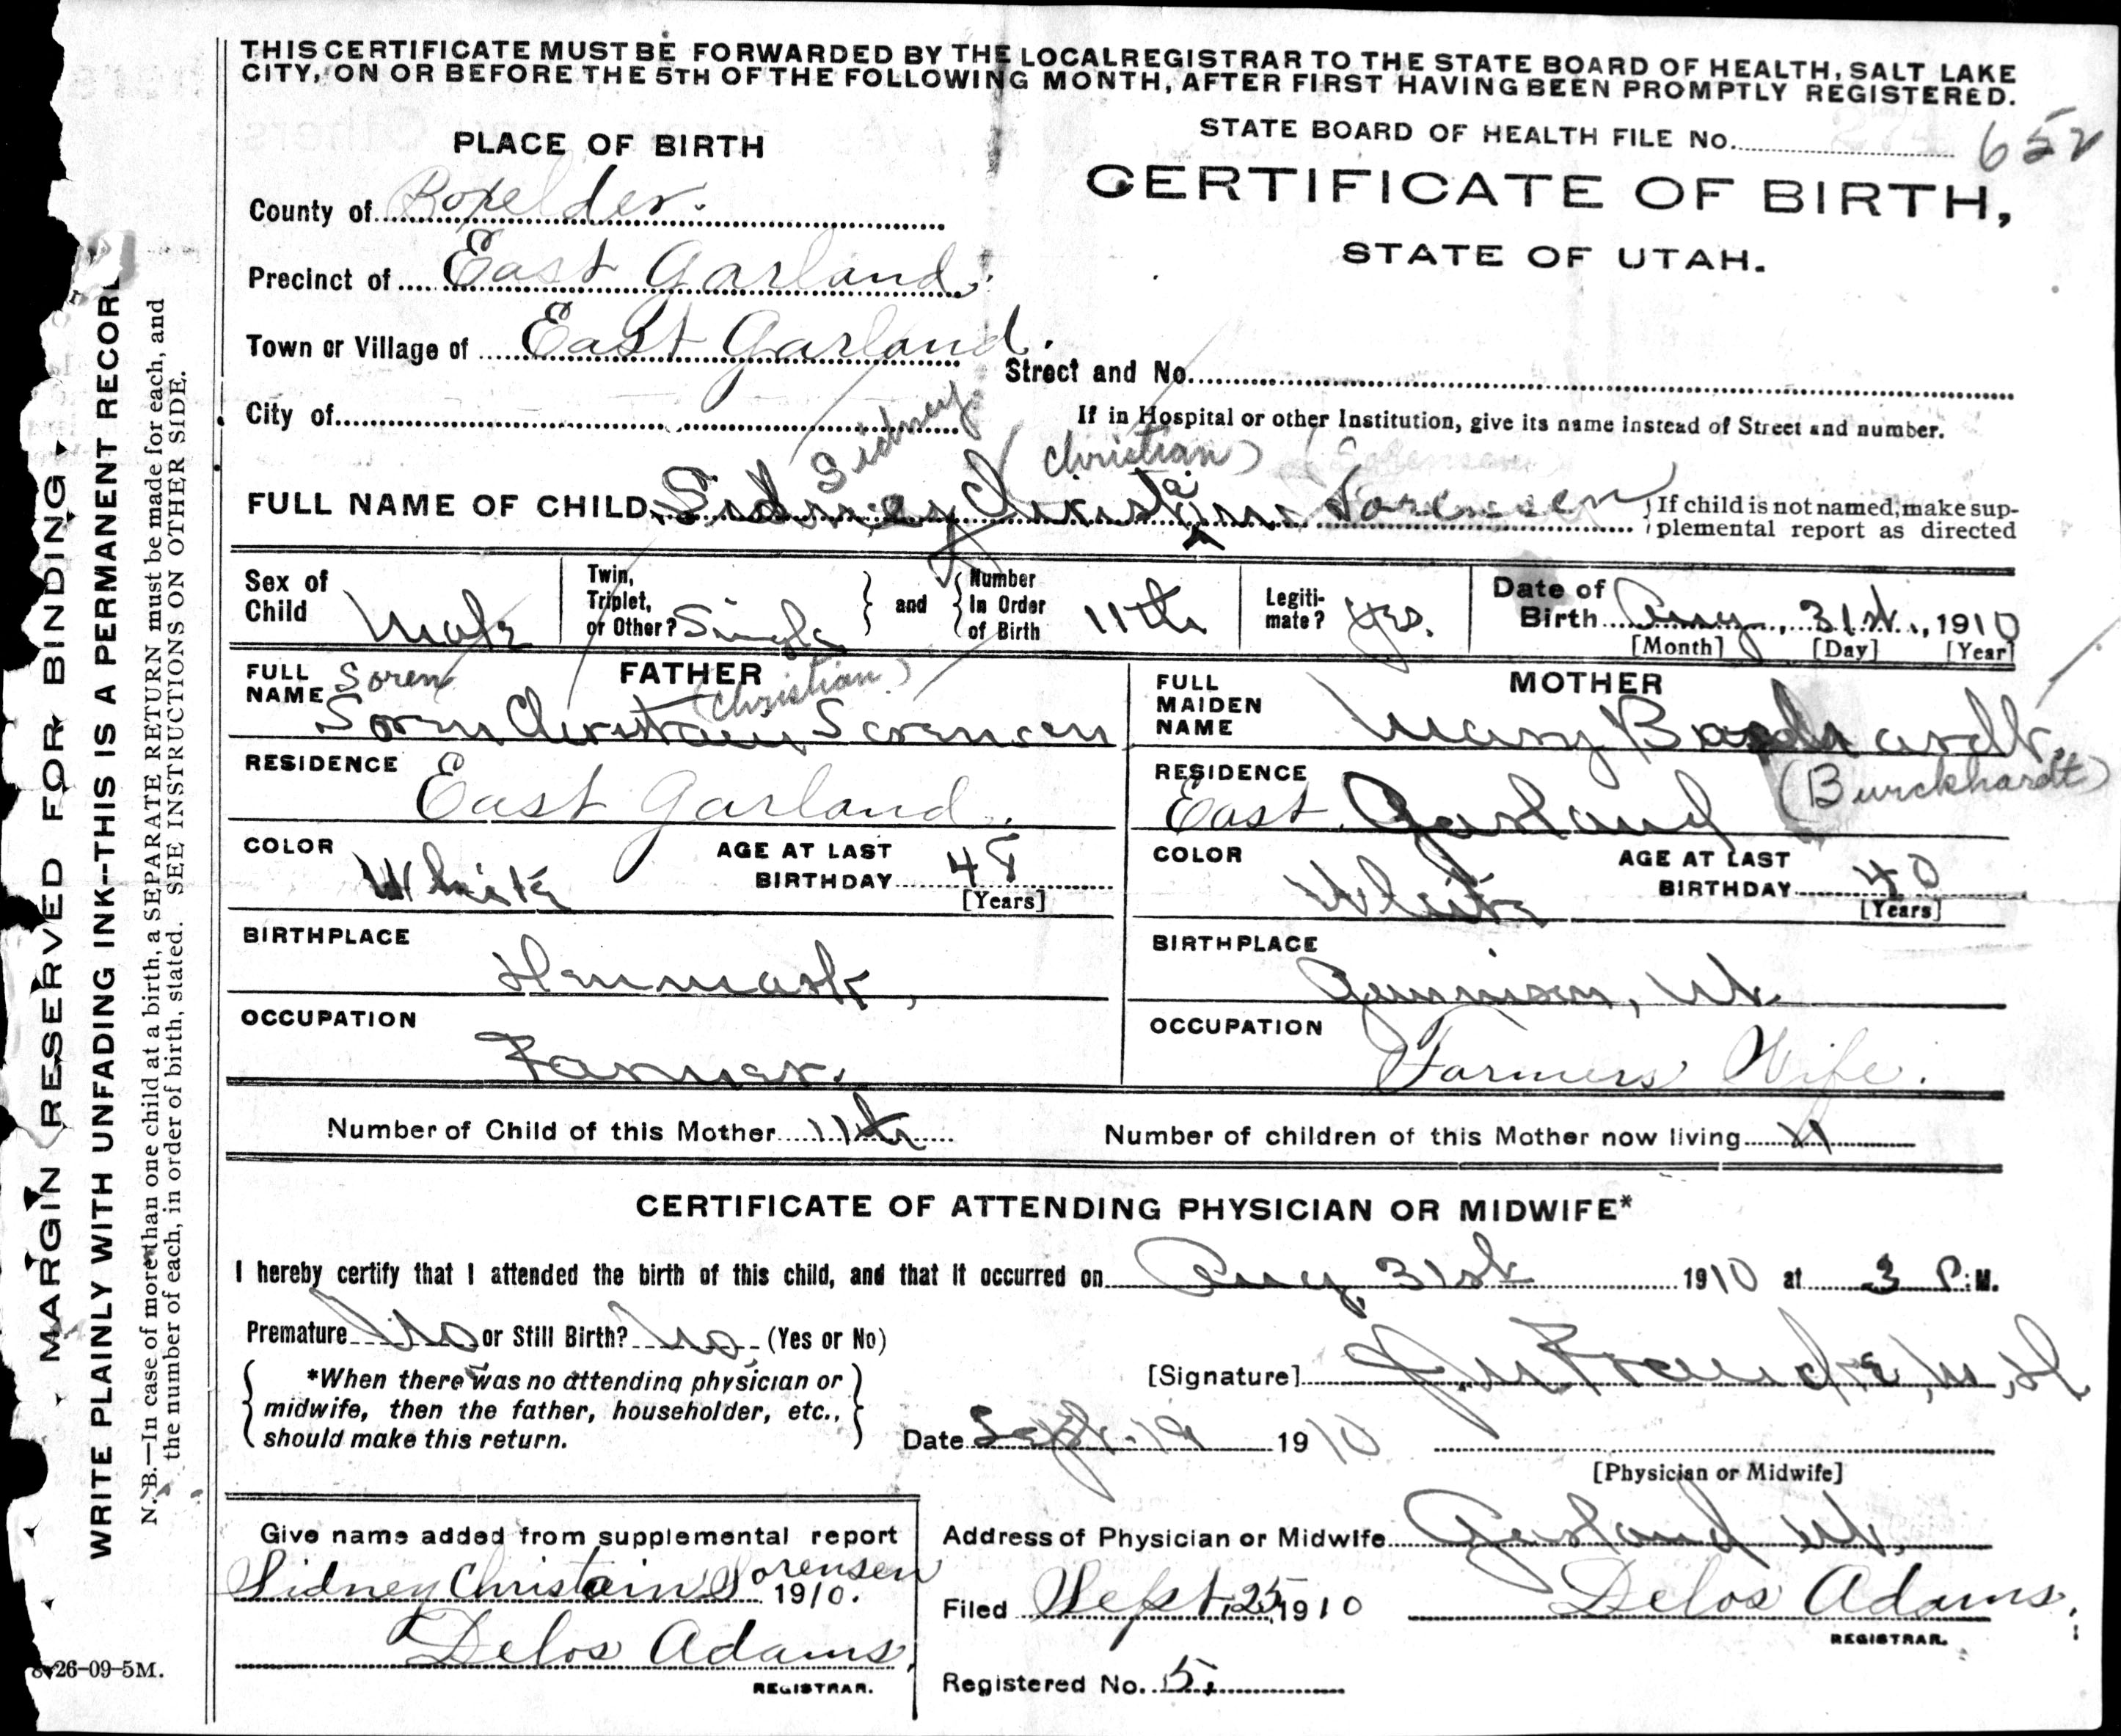 THIS CERTIFICATE MUST BE FORWARDED BY THE LOCAL REGISTRAR TO THE STATE BOARD OF HEALTH, SALT LAKE
CITY, ON OR BEFORE THE 5TH OF THE FOLLOWING MONTH, AFTER FIRST HAVING BEEN PROMPTLY REGISTERED.
STATE BOARD OF HEALTH FILE No. 652
PLACE OF BIRTH
CERTIFICATE OF BIRTH,
STATE OF UTAH.
County of Boxelder.
Precinct of East Garland.
Town or Village of East Garland.
Street and No.
City of
If in Hospital or other Institution, give its name instead of Street and number.
Sidney (Christian)
FULL NAME OF CHILD Sidney Christain Sorensen
If child is not named, make sup-
plemental report as directed
Sex of Child Male
Twin, Triplet, or Other? Single
and Number In Order of Birth 11th
Legiti-mate? Yes.
Date of Birth Aug, 31st, 1910
[Month] [Day] [Year]
FATHER
FULL NAME Soren (Christian)
Soren Christain Sorensen
RESIDENCE East Garland.
COLOR White
AGE AT LAST BIRTHDAY 48
[Years]
BIRTHPLACE
Denmark,
OCCUPATION
Farmer.
MOTHER
FULL MAIDEN NAME Mary
(Burckhardt)
RESIDENCE
East Garland
COLOR White
AGE AT LAST BIRTHDAY 40
[Years]
BIRTHPLACE
Gunnison, Ut.
OCCUPATION
Farmers Wife.
Number of Child of this Mother 11th
Number of children of this Mother now living 11
CERTIFICATE OF ATTENDING PHYSICIAN OR MIDWIFE*
I hereby certify that I attended the birth of this child, and that it occurred on Aug, 31st 1910 at 3 P.M.
Premature No or Still Birth? No. (Yes or No)
*When there was no attending physician or
midwife, then the father, householder, etc.,
should make this return.
[Signature] M.D
Date Sept. 19 1910
[Physician or Midwife]
Give name added from supplemental report
Sidney Christain Sorensen
1910.
Delos Adams.
REGISTRAR.
Address of Physician or Midwife Garland Ut.
Filed Sept. 25, 1910
Delos Adams.
REGISTRAR.
Registered No. 5.
8-26-09-5M.
MARGIN RESERVED FOR BINDING
WRITE PLAINLY WITH UNFADING INK--THIS IS A PERMANENT RECOR
N. B.—In case of more than one child at a birth, a SEPARATE RETURN must be made for each, and
the number of each, in order of birth, stated. SEE INSTRUCTIONS ON OTHER SIDE.